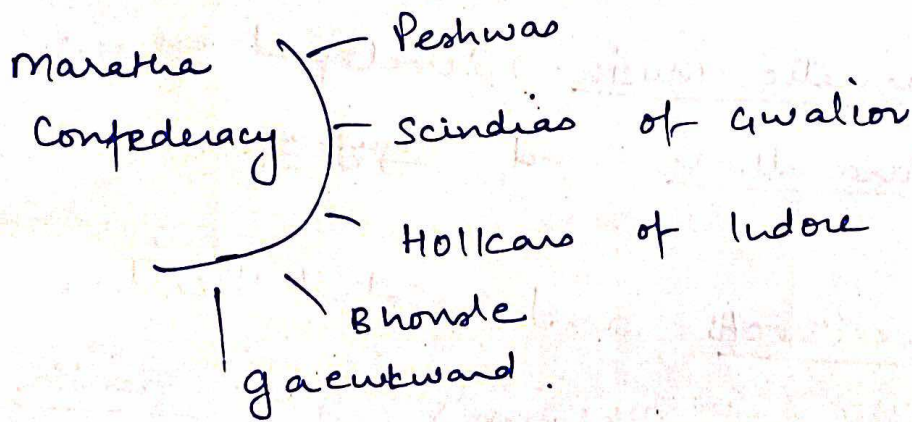 Maratha
Confederacy
Peshwas
Scindias of Gwalior
Hollkars of Indore
Bhonsle
gaewkward.